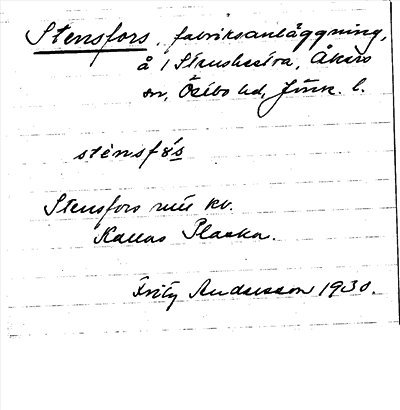 Stensfors, fabriksanläggning,
å / Stenshestra, Åkers
sn, Östbo hd, Jönk. l.
stènsfɔ́s
Stensfors
Kallas
Fritz Andersson 1930.